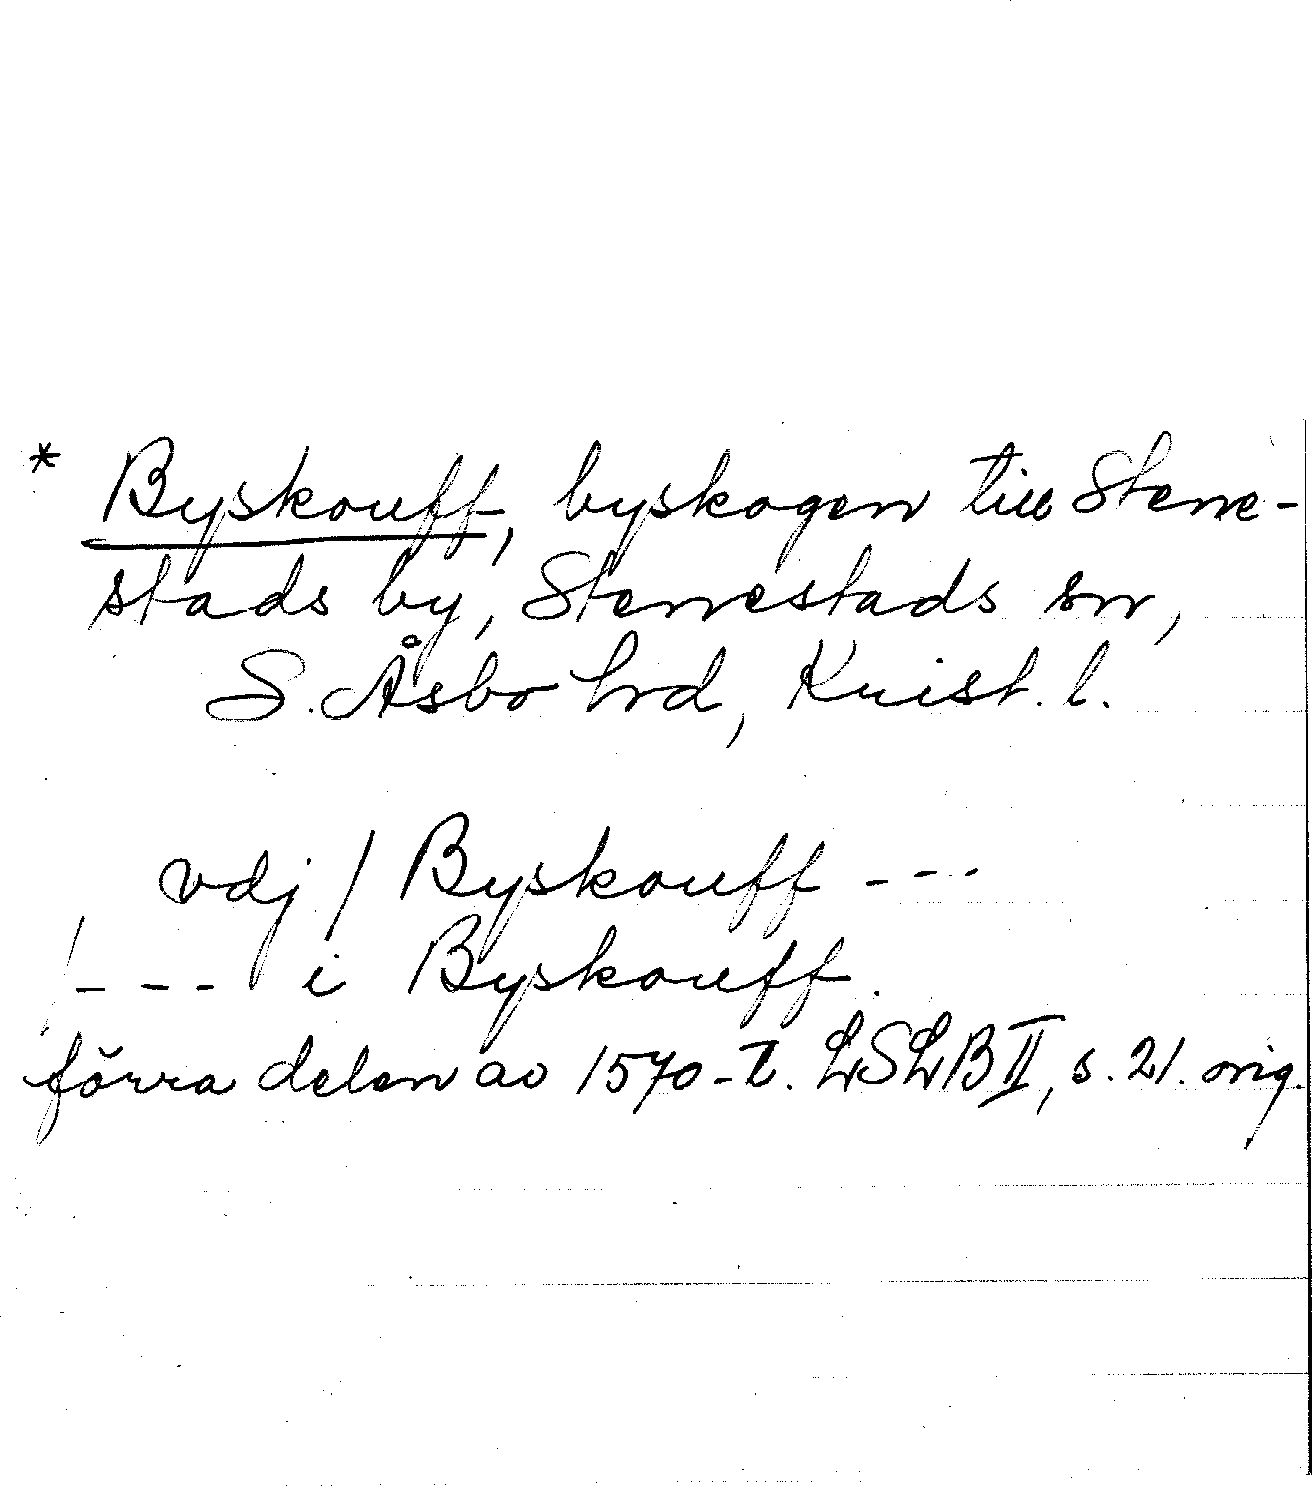 * Byskouff, byskogen till Stene-
stads by, Stenestads sn,
S. Åsbo hrd, Krist. l.
vdj / Byskouff ---
/ --- i Byskouff.
förra delen av 1570-t. LSLB II, s. 21. orig.